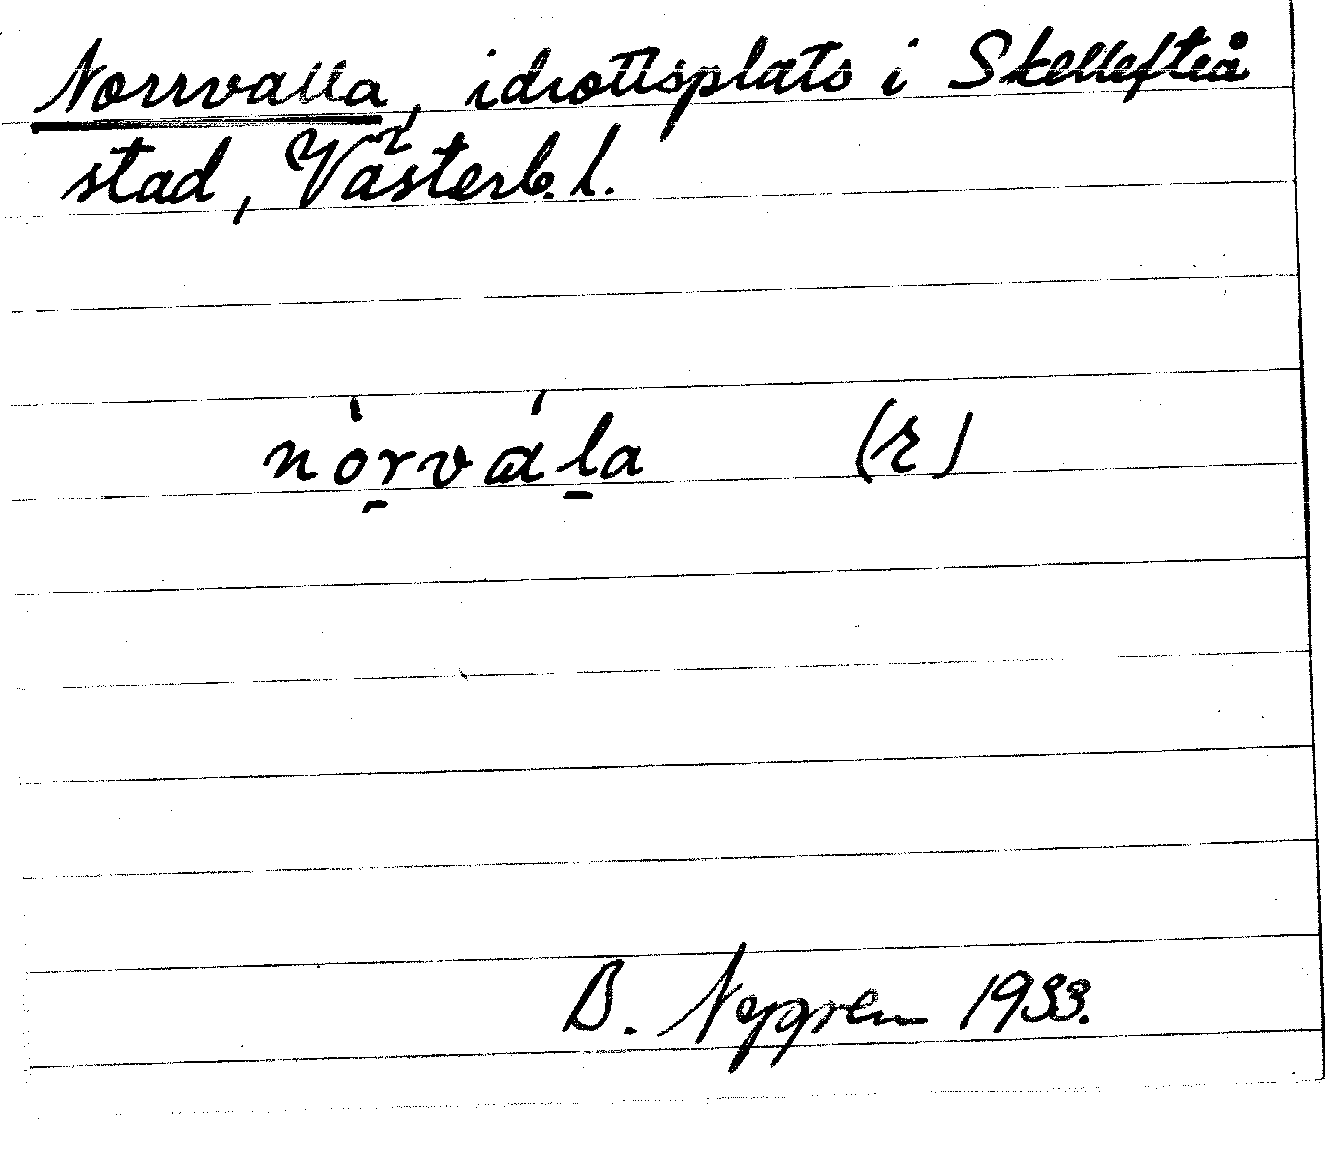 Norrvalla, idrottsplats i Skellefteå
stad, Västerb. l.
nòrvála (r)
B. 1933.